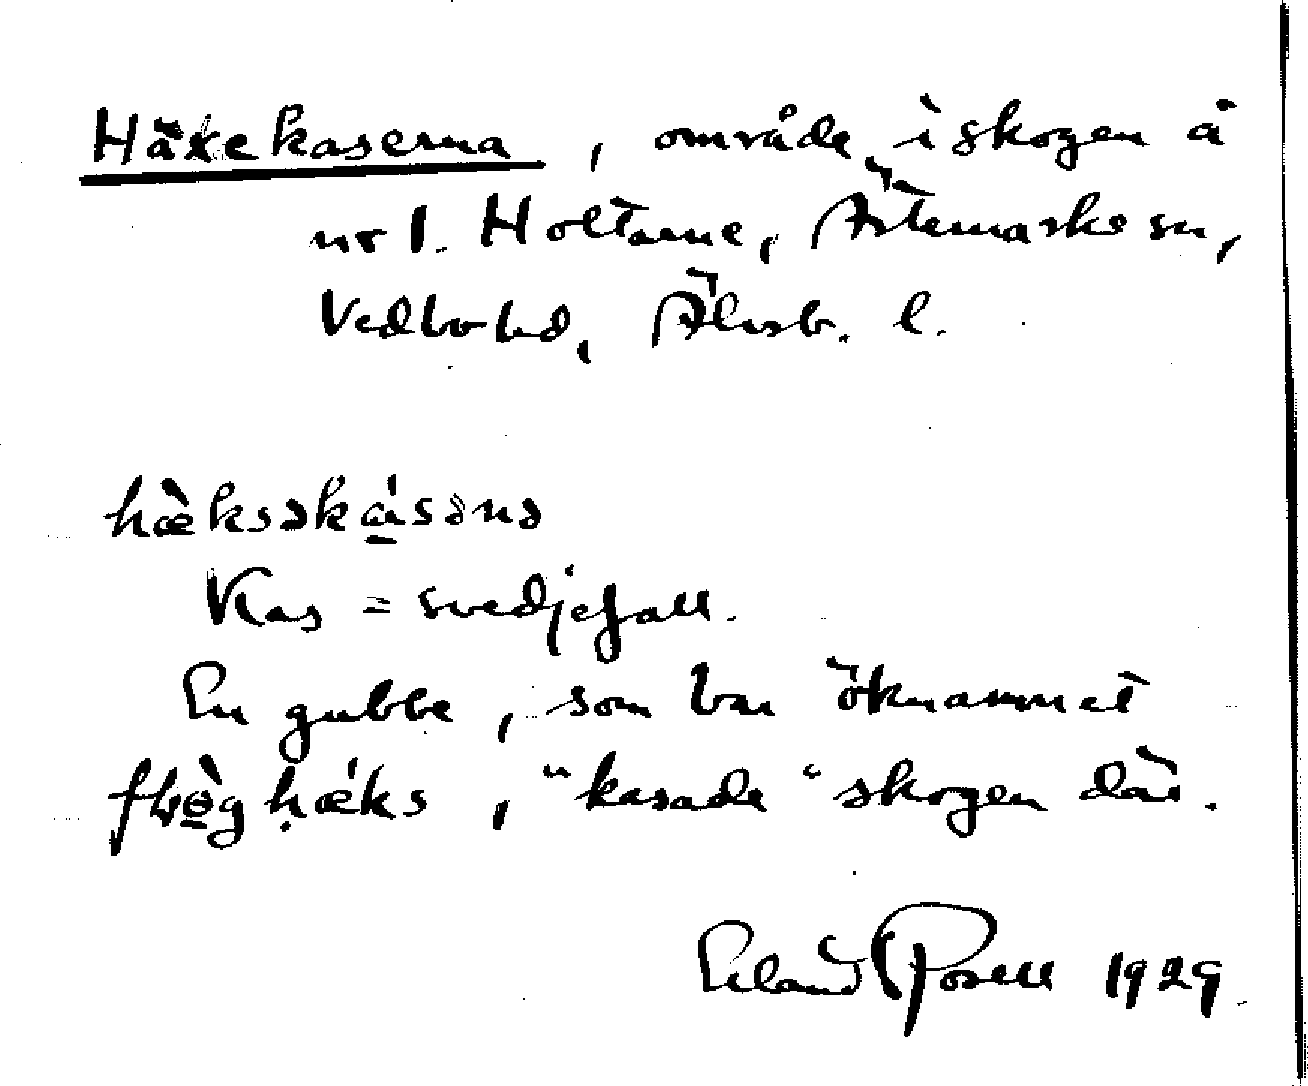 Häxekaserna, område i skogen å
nr 1. Holtane, Ärtemarks sn,
Vedbo hd, Älvsb. l.
hæ̀ksəkásənə
Kas = svedjefall.
En gubbe, som bar öknamnet
hǽks, "kasade" skogen där.
Erland Rosell 1929